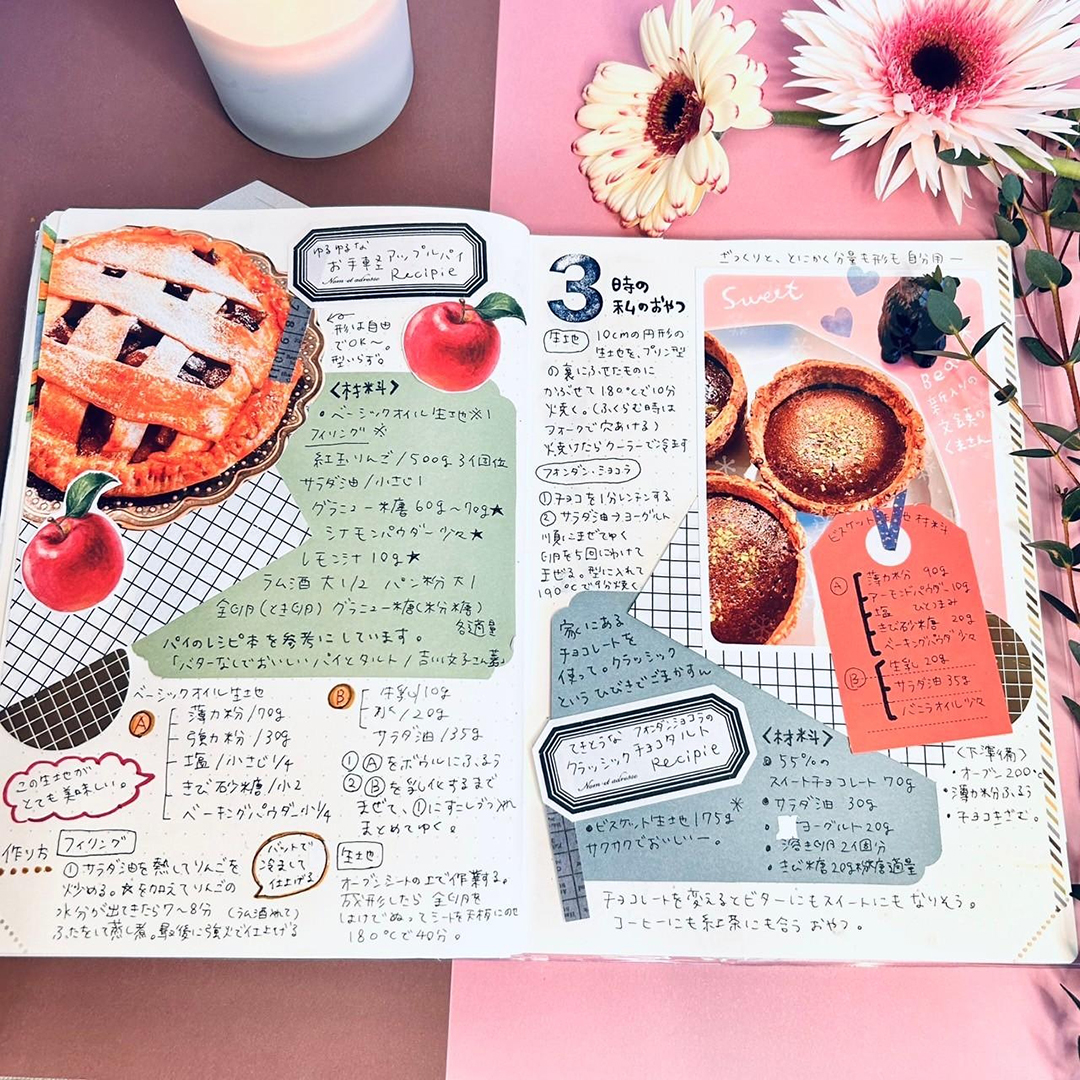 ゆるゆるな
お手軽アップルパイ
Recipie
Nom et adresse
形は自由
でOK〜。
型いらず。
〈材料〉
・ベーシックオイル生地※1
フィリング※
紅玉りんご/500g 3個位
サラダ油/小さじ1
グラニュー糖 60g〜70g★
シナモンパウダー少々★
レモン汁 10g★
ラム酒 大1/2 パン粉 大1
全卵(とき卵) グラニュー糖(粉糖)
各適量
パイのレシピ本を参考にしています。
「バターなしでおいしいパイとタルト/吉川文子さん著」
ベーシックオイル生地
A
薄力粉/70g
強力粉/30g
塩/小さじ1/4
きび砂糖/小2
ベーキングパウダー小1/4
B
牛乳/10g
水/20g
サラダ油/35g
この生地が
とても美味しい。
①Aをボウルにふるう
②Bを乳化するまで
まぜて、①にすこしずつ入れ
まとめてゆく。
作り方
フィリング
①サラダ油を熱してりんごを
炒める。★を加えてりんごの
水分が出てきたら7〜8分 (ラム酒入れて)
ふたをして蒸し煮。最後に強火で仕上げる
バットで
冷まして
仕上げる
生地
オーブンシートの上で作業する。
成形したら 全卵を
はけでぬってシートを天板にのせ
180℃で40分。
3時の
私のおやつ
ざっくりと、とにかく分量も形も自分用ー
生地
10cmの円形の
生地を、プリン型
の裏にふせたものに
かぶせて180℃で10分
焼く。(ふくらむ時は
フォークで穴あける)
焼けたらクーラーで冷ます
フォンダン・ショコラ
①チョコを1分レンチンする
②サラダ油→ヨーグルト
順にまぜてゆく
卵を5回にわけて
まぜる。型に入れて
190℃で9分焼く
Sweet
Bea
新入りの
文鎮の
くまさん
ビスケット 地材料
A
薄力粉 90g
アーモンドパウダー10g
塩 ひとつまみ
きび砂糖 20g
ベーキングパウダ少々
B
牛乳 20g
サラダ油35g
バニラオイル少々
家にある
チョコレートを
使って。クラッシック
というひびきでごまかすん
てきとうな フォンダンショコラの
クラシックチョコタルト
Recipie
Nom et adresse
〈材料〉
・55%の
スイートチョコレート 70g
・サラダ油 30g
・ヨーグルト20g
・溶き卵2個分
・きび糖20g粉糖適量
・ビスケット生地175g※
サクサクでおいしいー
〈下準備〉
・オーブン200℃
・薄力粉ふるう
・チョコきざむ。
チョコレートを変えるとビターにもスイートにもなりそう。
コーヒーにも紅茶にも合うおやつ。